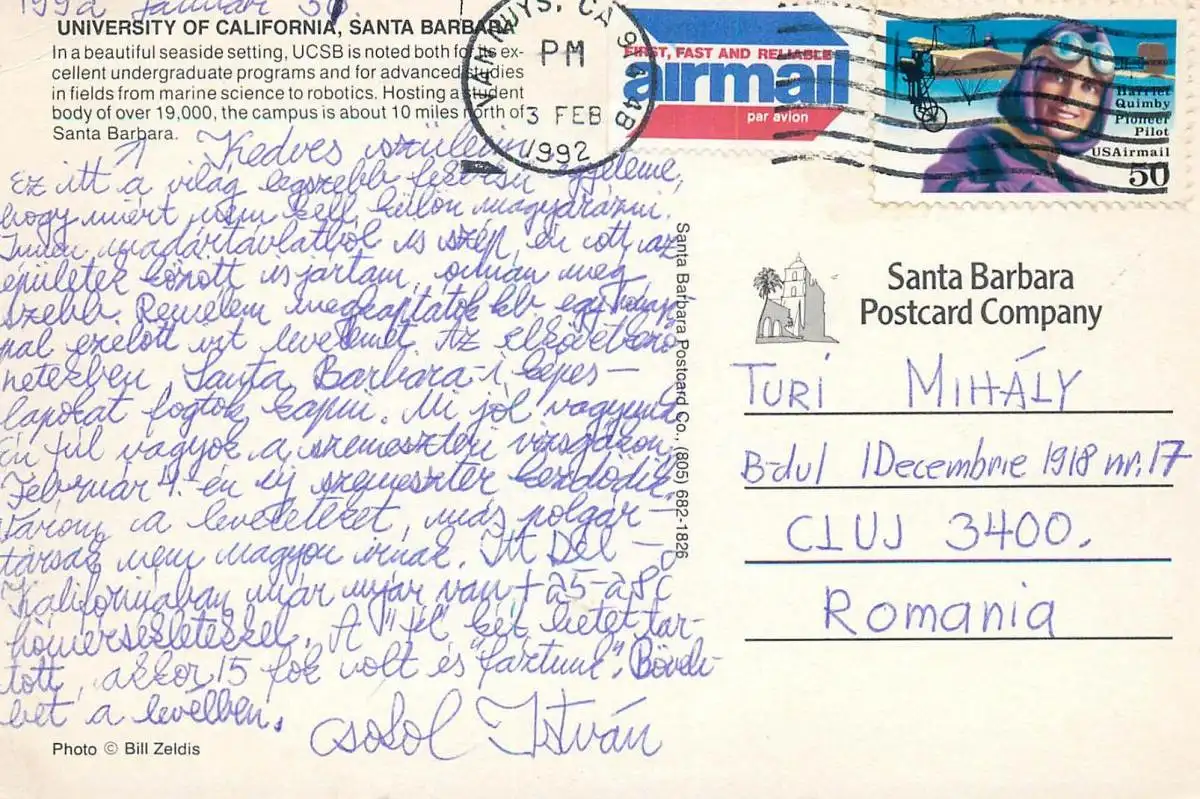 1992 Januar 30
UNIVERSITY OF CALIFORNIA, SANTA BARBARA
In a beautiful seaside setting, UCSB is noted both for its ex-
cellent undergraduate programs and for advanced studies
in fields from marine science to robotics. Hosting a student
body of over 19,000, the campus is about 10 miles north of
Santa Barbara.
Kedves szüleim
Ez itt a világ legszebb fekvésű egyeteme,
hogy miért nem kell külön magyarázni.
Innen madártávlatból is szép, én ott az
épületek között is jártam, onnan még
szebb. Remélem megkaptátok kb egy hónap
pal ezelőtt írt levelemet. Az elkövetkező
hetekben Santa Barbara-i képes-
lapokat fogtok kapni. Mi jól vagyunk
Én túl vagyok a szemeszteri vizsgákon,
Február 4.-én új szemeszter kezdődik.
Várom a leveleteket, más polgár-
társak nem nagyon írnak. Itt Dél-
Kaliforniában már nyár van +25-28C
hőmérsékletekkel. A "tél" két hetet tar-
tott, akkor 15 fok volt és "fáztunk". Bőveb-
bet a levélben.
csókol István
Photo © Bill Zeldis
Santa Barbara Postcard Co., (805) 682-1826
VAN NUYS, CA 914
PM
3 FEB
1992
FIRST, FAST AND RELIABLE
airmail
par avion
Harriet
Quimby
Pioneer
Pilot
USAirmail
50
Santa Barbara
Postcard Company
TURI MIHÁLY
B-dul 1 Decembrie 1918 nr. 17
CLUJ 3400.
Romania